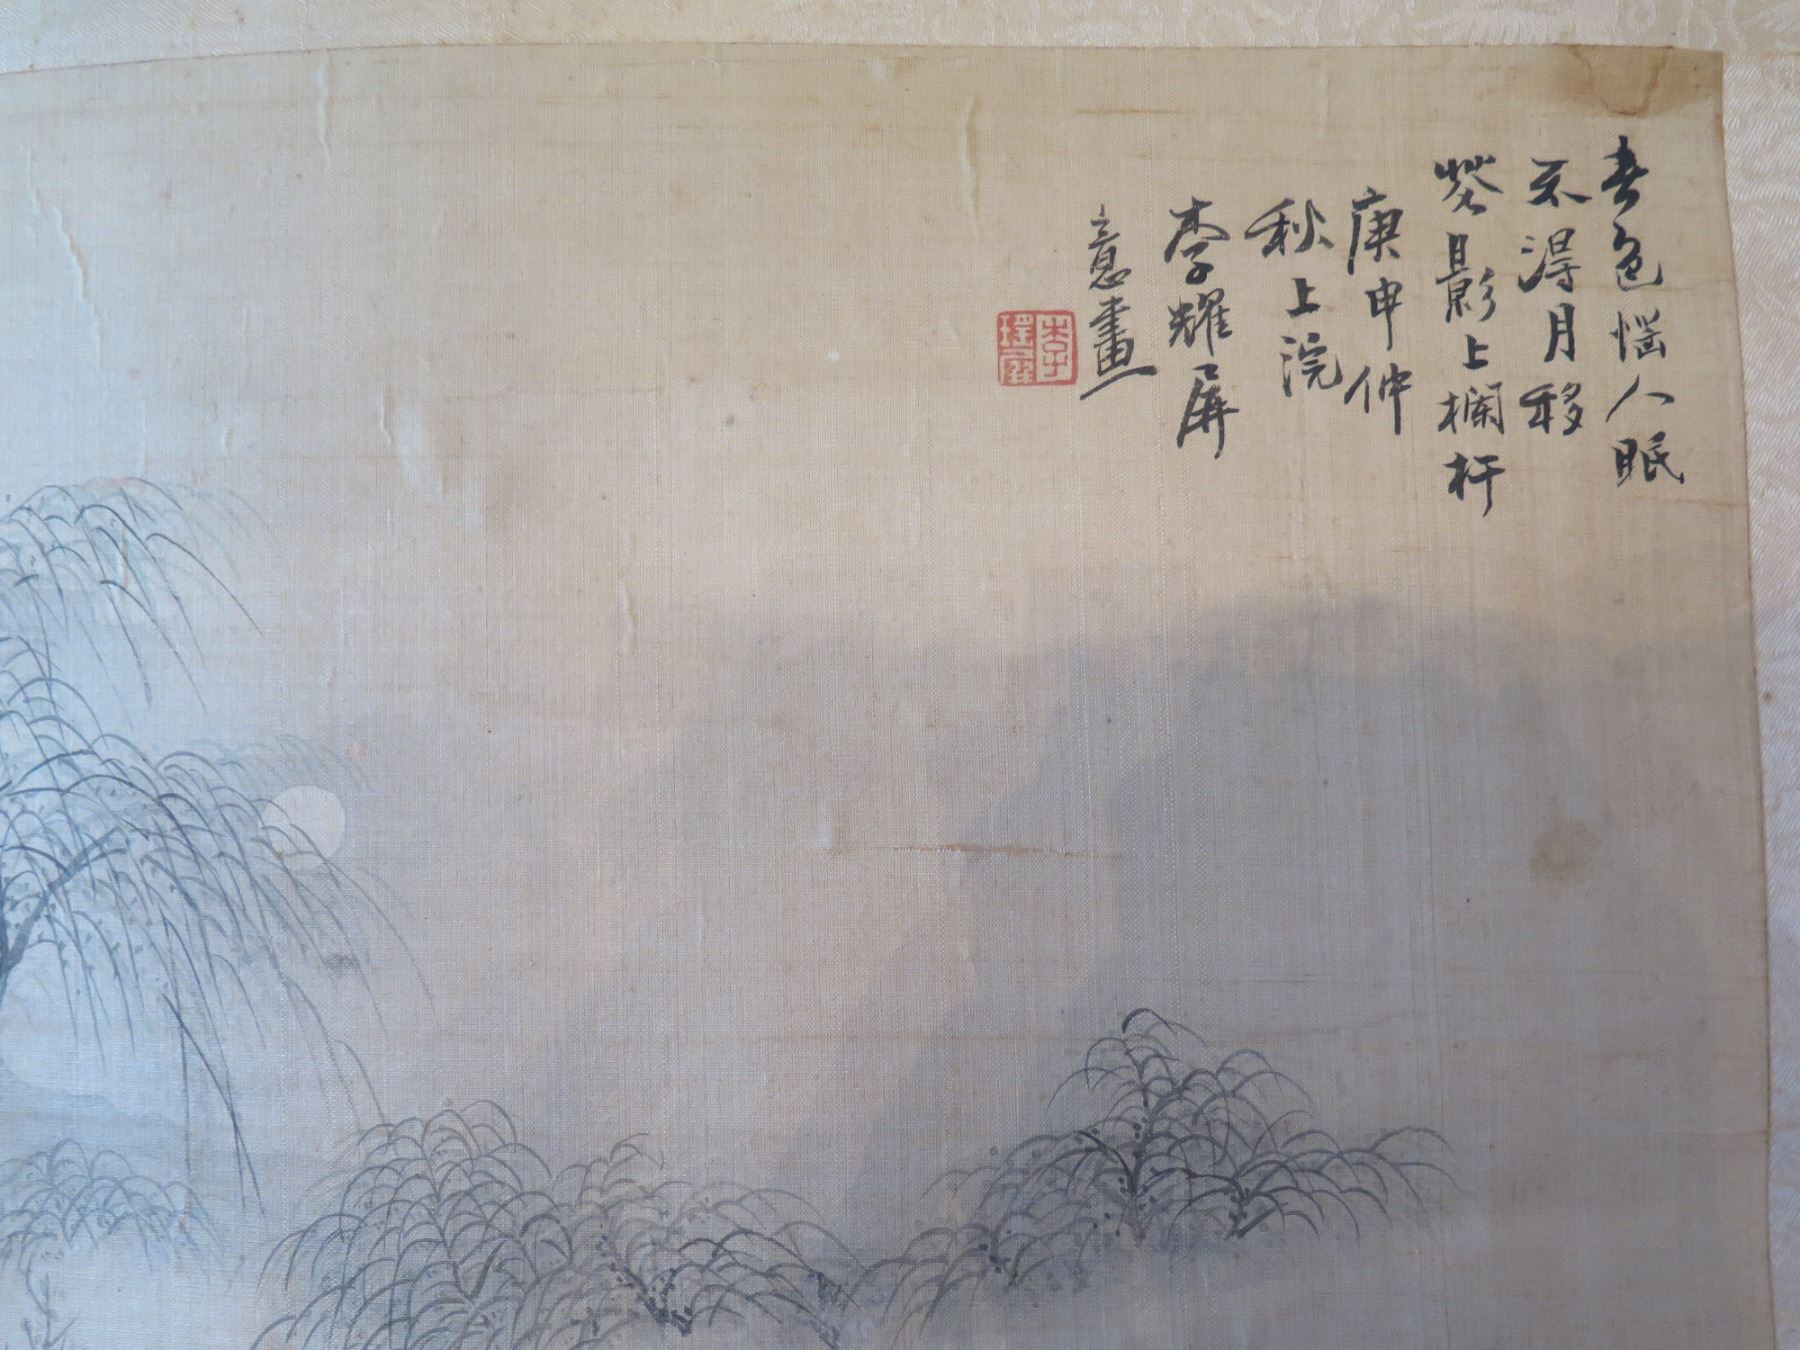 春色惱人眠
不得月移
花影上欄杆
庚申仲
秋上浣
李耀屏
意畫
李耀屏